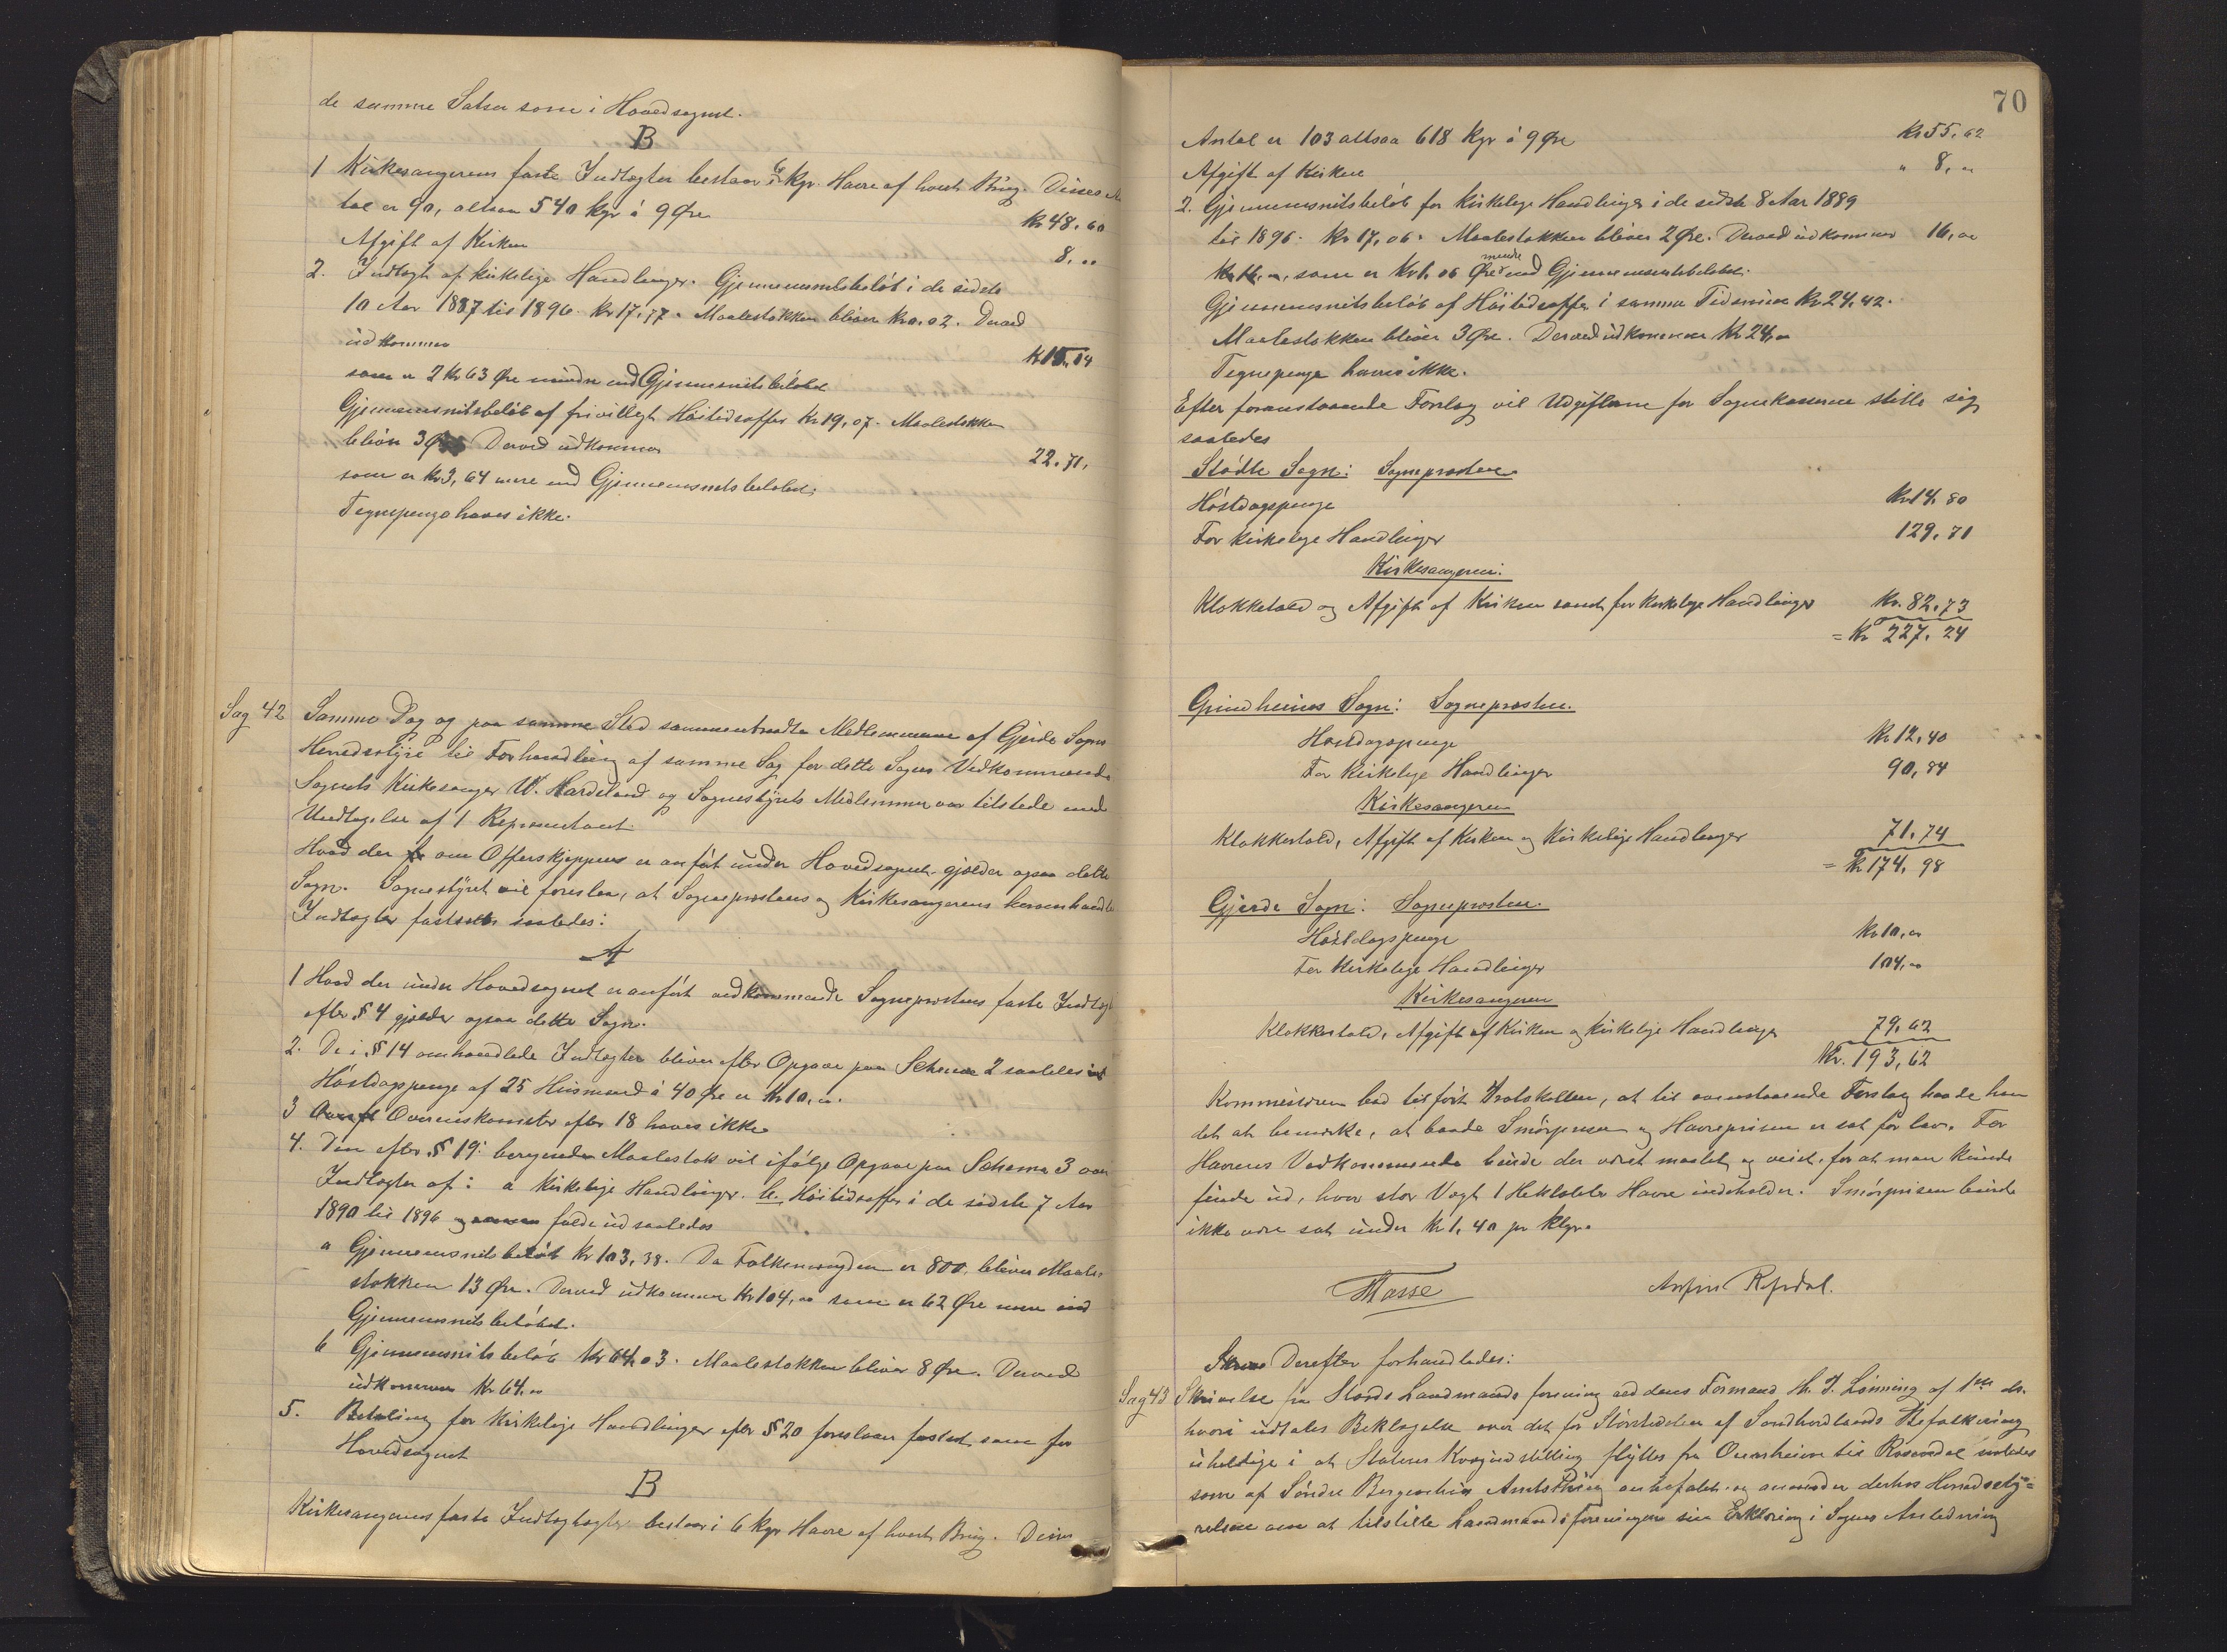 de samme Satser som i Hovedsognet.
B
1 Kirkesangerens faste Indtægter bestaar i 6 kgr. Havre af hvert Brug. Disses An
tal er 90, altsaa 540 kgr à 9 Øre Kr 48,60
Afgift af Kirken 8,„
2. Indtægt af kirkelige Handlinger. Gjennemsnitsbeløb i de sidste
10 Aar 1887 til 1896 Kr 17,77. Maalestokken bliver Kr 0.02. Derved
udkommer Kr 15,14
som er 2 Kr 63 Øre mindre end Gjennemsnitsbeløbet
Gjennemsnitsbeløb af frivilligt Høitidsoffer Kr 19,07. Maalestokken
bliver 3 Øre Derved udkommer 22.71,
som er Kr 3,64 mere end Gjennemsnitsbeløbet.
Tegnepenge haves ikke.
Sag 42 Samme Dag og paa samme Sted sammentraadte Medlemmerne af Gjerde Sogns
Herredsstyre til Forhandling af samme Sag for dette Sogns Vedkommende
Sognets Kirkesanger W. Hardeland og Sognestyrets Medlemmer var tilstede med
Undtagelse af 1 Repræsentant.
Hvad der om Offerskjæppen er anført under Hovedsognet gjælder ogsaa dette
Sogn. Sognestyret vil foreslaa, at Sogneprestens og Kirkesangerens heromhandlede
Indtægter fastsættes saaledes:
A
1 Hvad der under Hovedsognet er anført vedkommende Sogneprestens faste Indtægt
efter § 4 gjælder ogsaa dette Sogn.
2. De i § 14 omhandlede Indtægter bliver efter Opgave paa Schema 2 saaledes
Høstdagspenge af 25 Husmænd à 40 Øre er Kr 10,„.
3 Overenskomster efter 18 haves ikke
4. Den efter § 19: beregnede Maalestok vil ifølge Opgave paa Schema 3 over
Indtægter af: a Kirkelige Handlinger. b. Høitidsoffer i de sidste 7 Aar
1890 til 1896 falde ud saaledes
a Gjennemsnitsbeløb Kr 103,38. Da Folkemængden er 800, bliver Maale-
stokken 13 Øre. Derved udkommer Kr 104,„ som er 62 Øre mere end
Gjennemsnitsbeløbet.
b Gjennemsnitsbeløb Kr 64,03. Maalestokken bliver 8 Øre. Derved
udkommer Kr 64.„
5. Betaling for Kirkelige Handlinger efter § 20 foreslaaes fastsat som for
Hovedsognet
B
Kirkesangerens faste Indtægter bestaar i 6 kgr Havre af hvert Brug. Disses
70
Antal er 103 altsaa 618 Kgr à 9 Øre Kr 55,62
Afgift af Kirken „ 8,„
2. Gjennemsnitsbeløb for Kirkelige Handlinger i de sidste 8 Aar 1889
til 1896. Kr 17,06. Maalestokken bliver 2 Øre. Derved udkommer 16,„
Kr 16,„, som er Kr 1.06 Øre mindre end Gjennemsnitsbeløbet.
Gjennemsnitsbeløb af Høitidsoffer i samme Tidsrum Kr 24,42.
Maalestokken bliver 3 Øre. Derved udkommer Kr 24,„
Tegnepenge haves ikke.
Efter foranstaaende Forslag vil Udgifterne for Sognekasserne stille sig
saaledes
Stødle Sogn: Sognepresten
Høstdagspenge Kr 14,80
For Kirkelige Handlinger 129,71
Kirkesangeren.
Klokketold og Afgift af Kirken samt for Kirkelige Handlinger Kr. 82,73
= Kr 227,24
Grindheims Sogn: Sognepresten.
Høstdagspenge Kr 12,40
For Kirkelige Handlinger 90,84
Kirkesangeren
Klokkertold, Afgift af Kirken og Kirkelige Handlinger 71,74
= Kr 174,98
Gjerde Sogn: Sognepresten.
Høstdagspenge Kr 10,„
For Kirkelige Handlinger 104,„
Kirkesangeren
Klokkertold, Afgift af Kirken og kirkelige Handlinger 79,62
Kr. 193,62
Kommissionen bad tilført Protokollen, at til ovenstaaende Forslag havde han
det at bemærke, at baade Smørprisen og Havreprisen er sat for lav. For
Havrens Vedkommende burde der været maalt og veiet, for at man kunde
finde ud, hvor stor Vægt 1 Hektoliter Havre indeholder. Smørprisen burde
ikke være sat under Kr 1,40 pr klgr.
Masse Anfin Refsdal.
Derefter forhandledes:
Sag 43 Skrivelse fra Stords Landmandsforening ved dens Formand H. J. Lønning af 1ste ds.
hvori udtales Beklagelse over det for Størstedelen af Søndhordlands Befolkning
uheldige i at Statens Kvægudstilling flyttes fra Ølensheim til Rosendal saaledes
som af Søndre Bergenhus Amtsthing anbefalet og anmoder derhos Herredssty=
relsen om at tilstille Landmandsforeningen sin Erklæring i Sagens Anledning